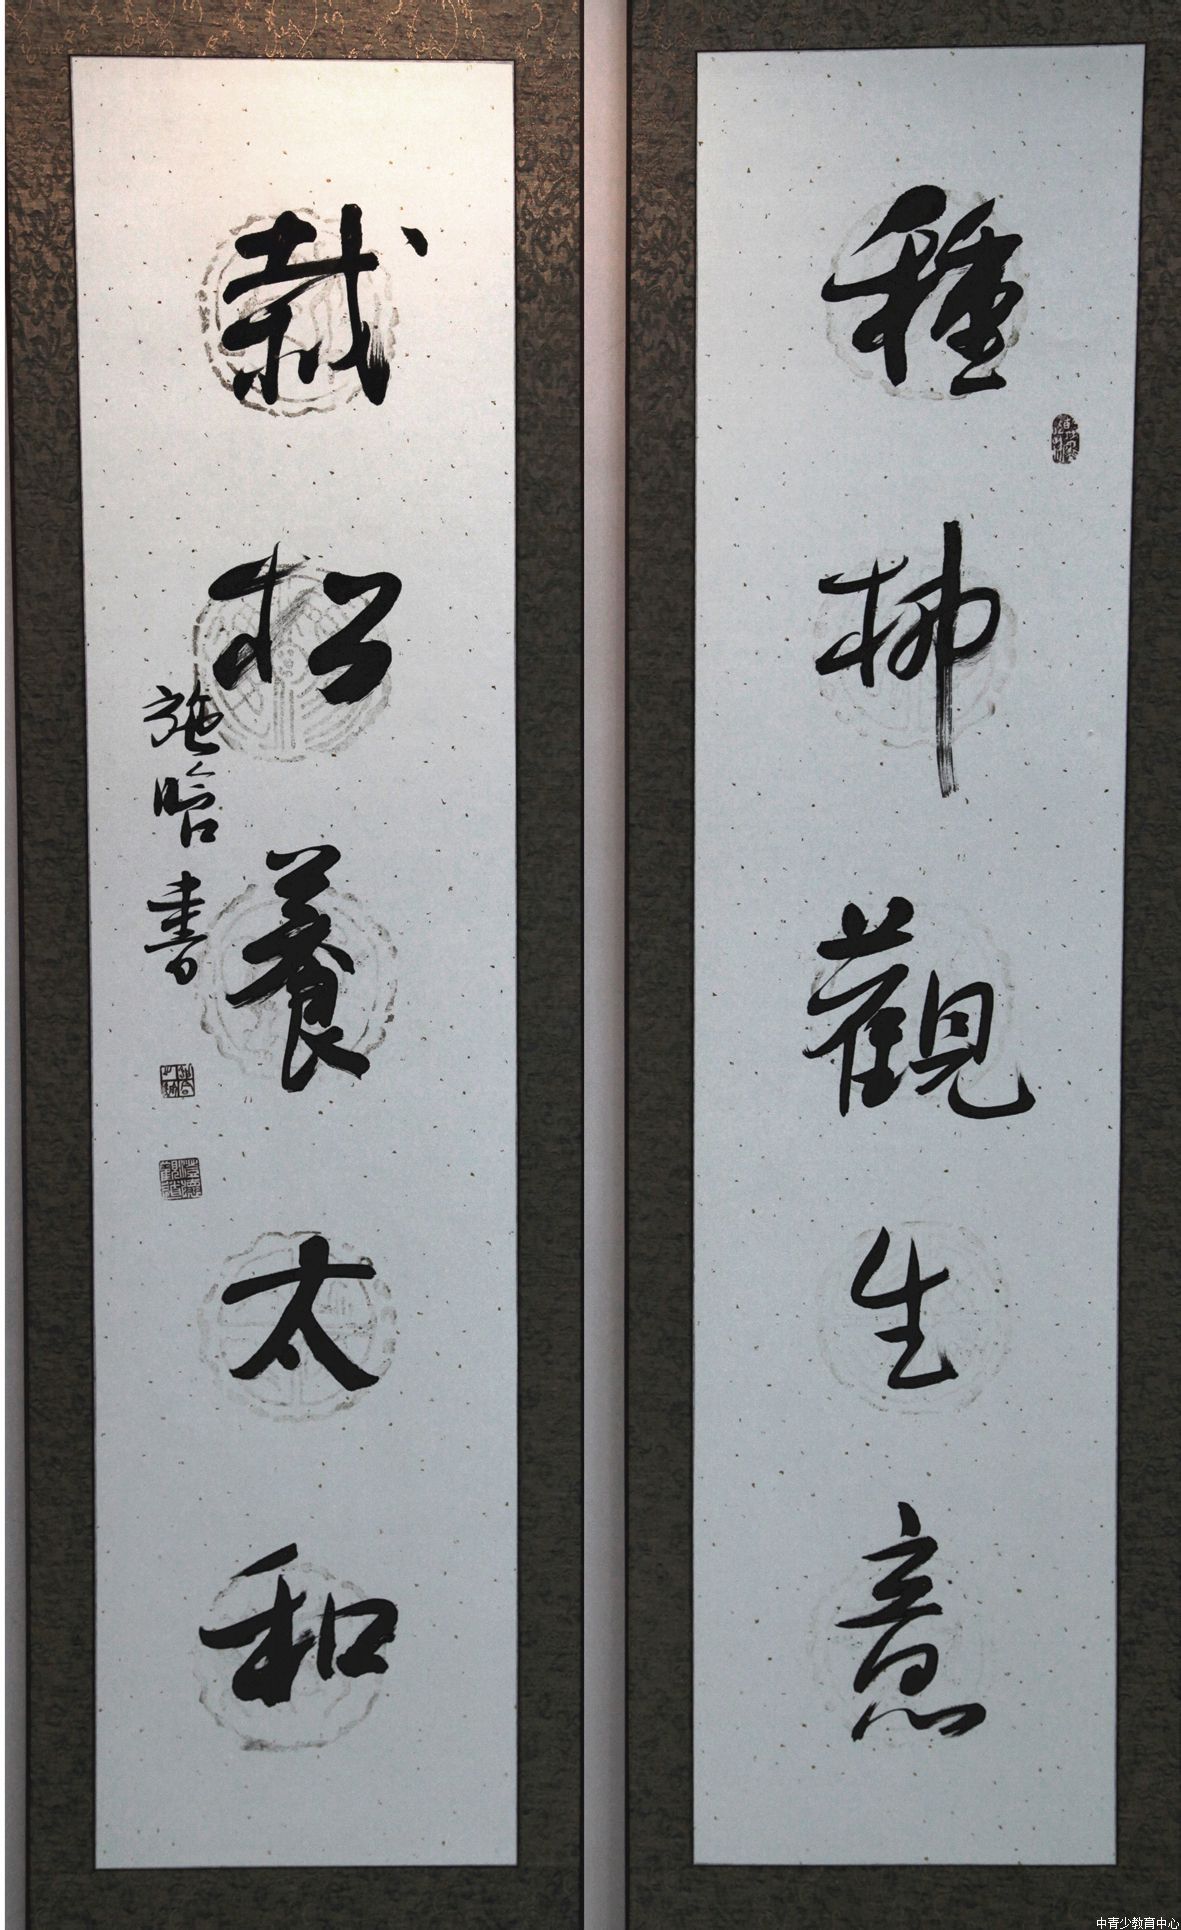 種柳觀生意
栽松養太和
施晗書
中青少教育中心